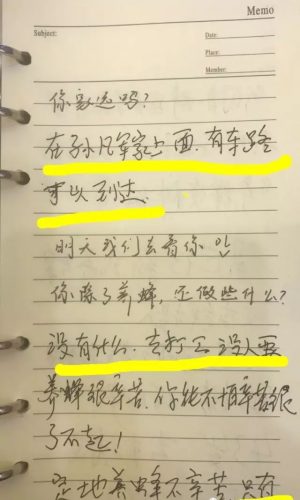 Memo
Subject:
Date:
Place:
Member:
你家远吗?
在孙凡军家上面.有车路
可以到达.
明天我们去看你
你除了养蜂,还做些什么?
没有什么.去打工没人要
养蜂很辛苦.你能不怕辛苦很
了不起!
定地养蜂不辛苦.只有